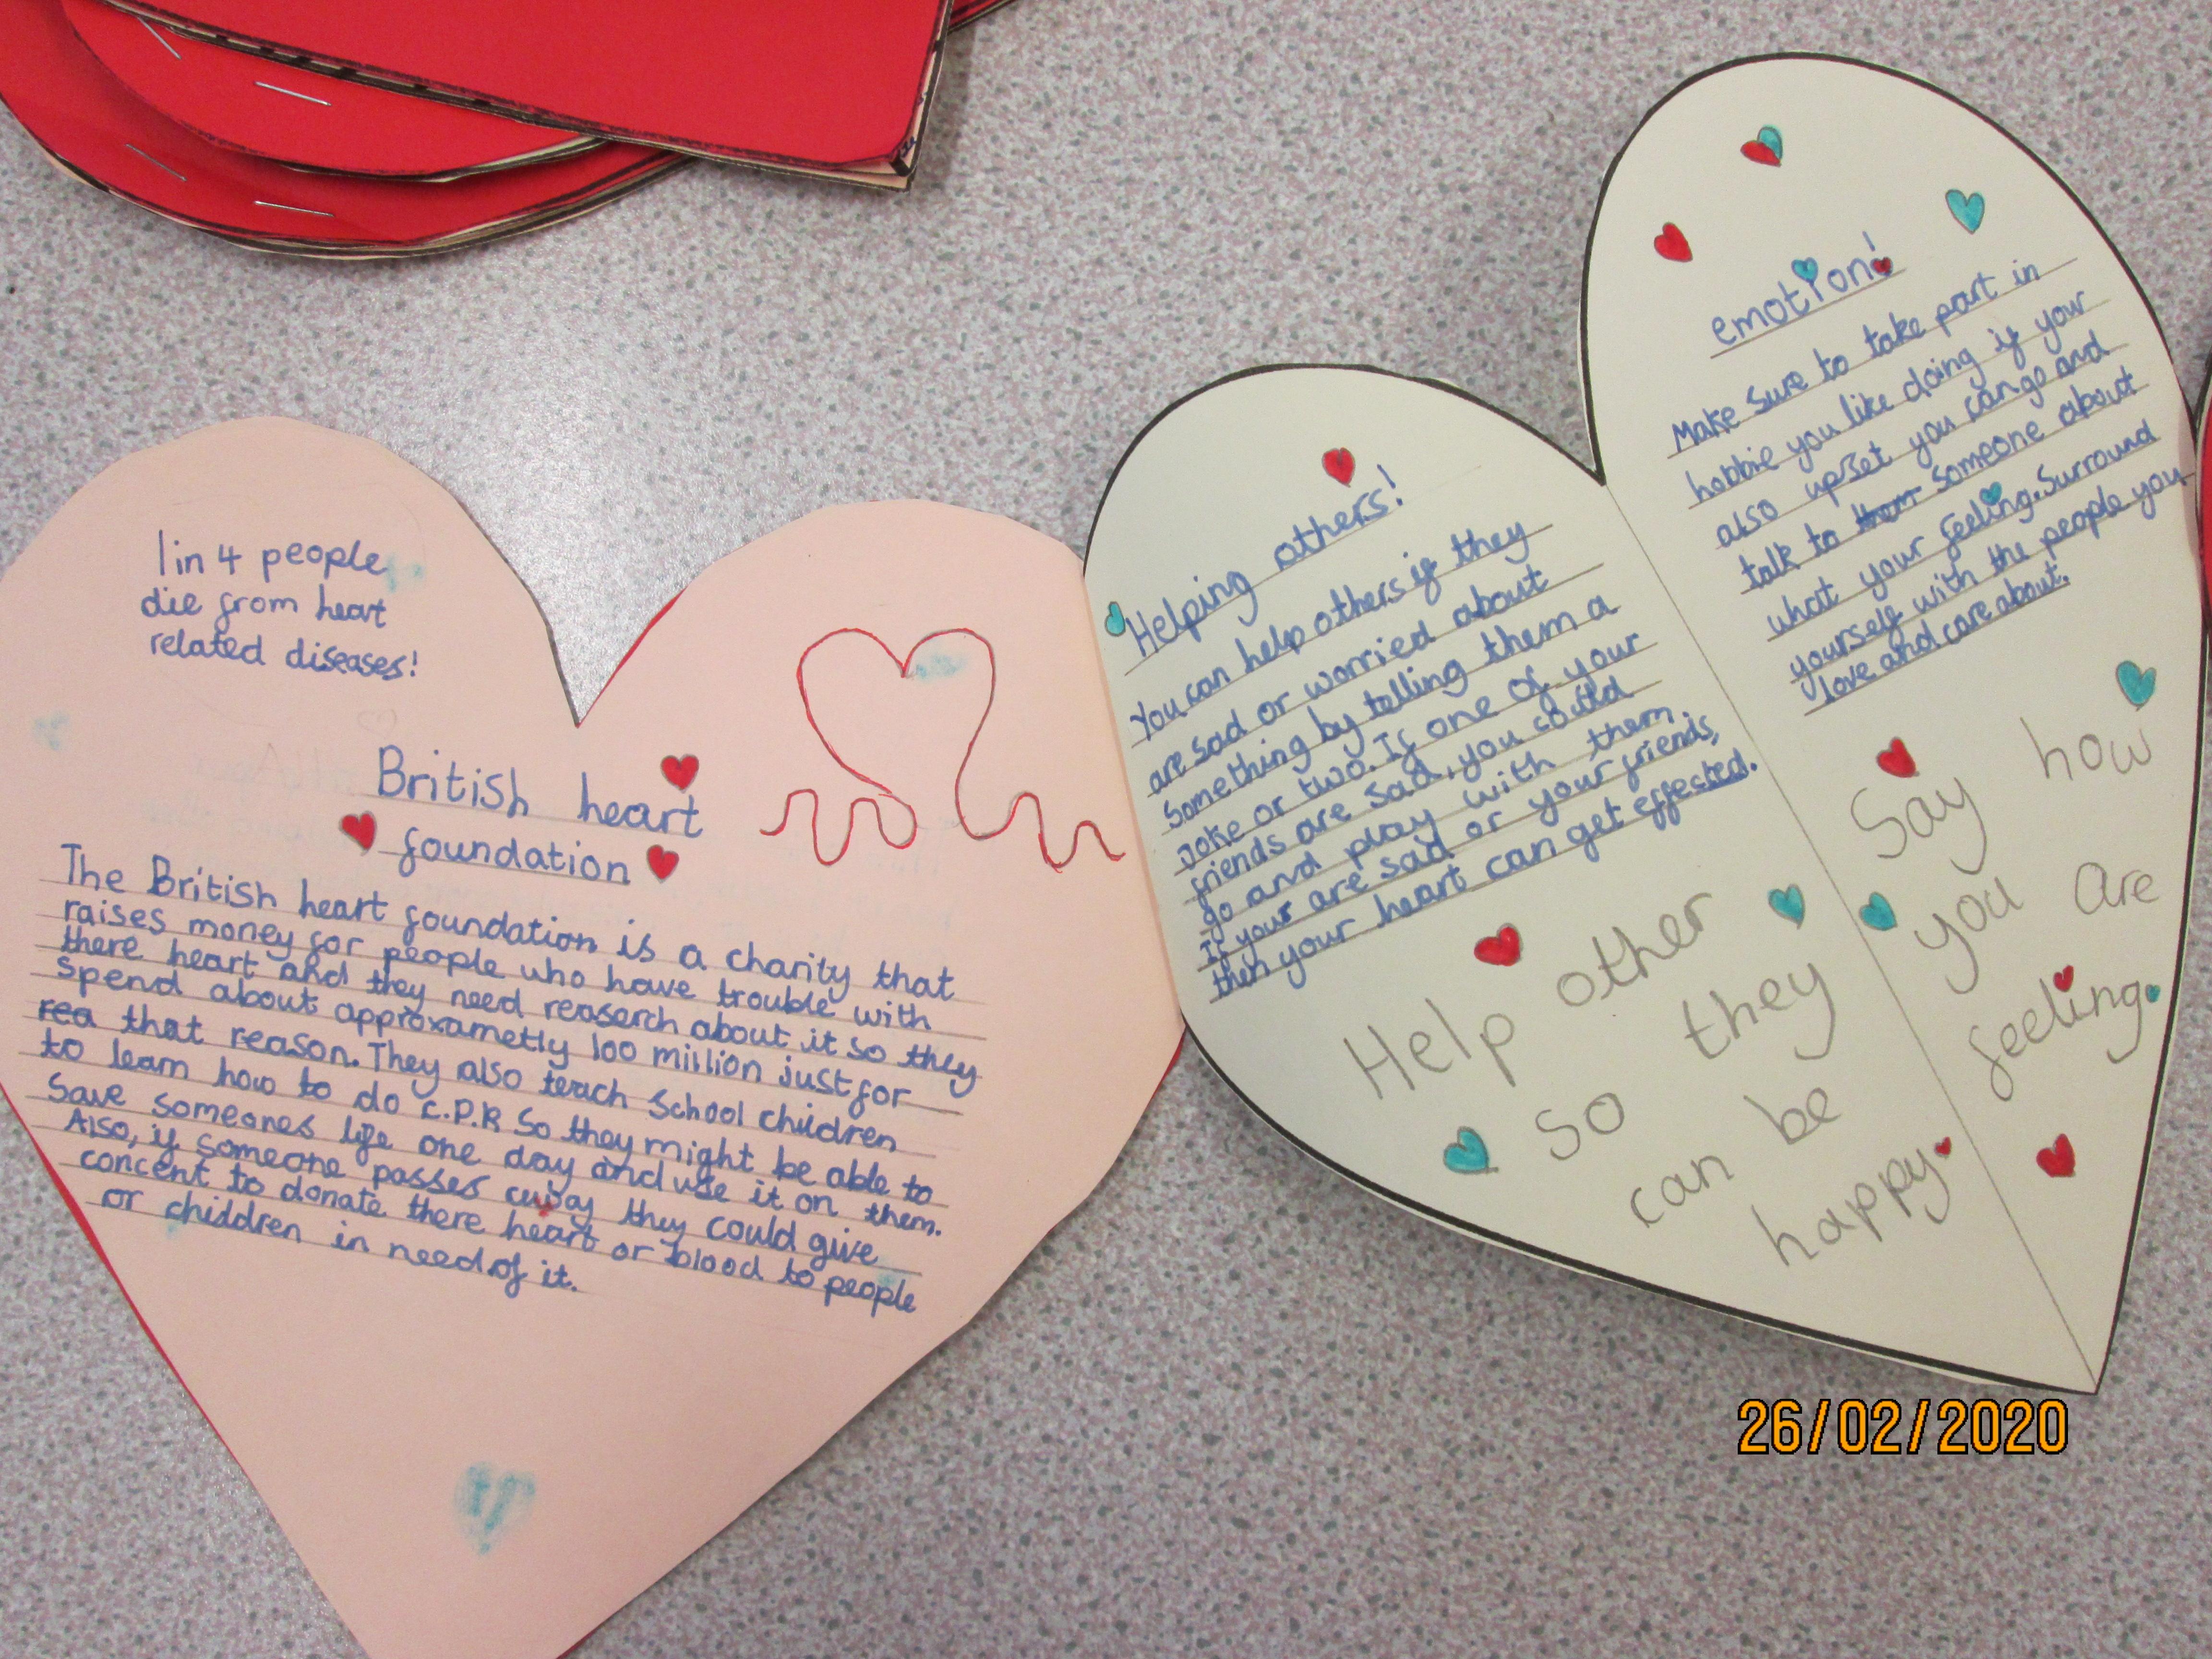 1 in 4 people
die from heart
related diseases!
British heart
foundation
The British heart foundation is a charity that
raises money for people who have trouble with
there heart and they need reaserch about it so they
spend about approxametly 100 million just for
rea that reason. They also teach School children
to learn how to do C.P.R So they might be able to
Save someones life one day and use it on them.
Also, if someone passes away they could give
concent to donate there heart or blood to people
or chiddren in need of it.
Helping others!
You can help others if they
are sad or worried about
Something by telling them a
Joke or two. If one of your
friends are sad, you could
go and play with them.
If your are sad or your friends,
then your heart can get effected.
Help other
so they
can be
happy.
emotion!
Make Sure to take part in
hobbie you like doing if your
also upset you can go and
talk to them someone about
what your feeling. Surround
yourself with the people you
love and care about.
Say how
you are
feeling.
26/02/2020